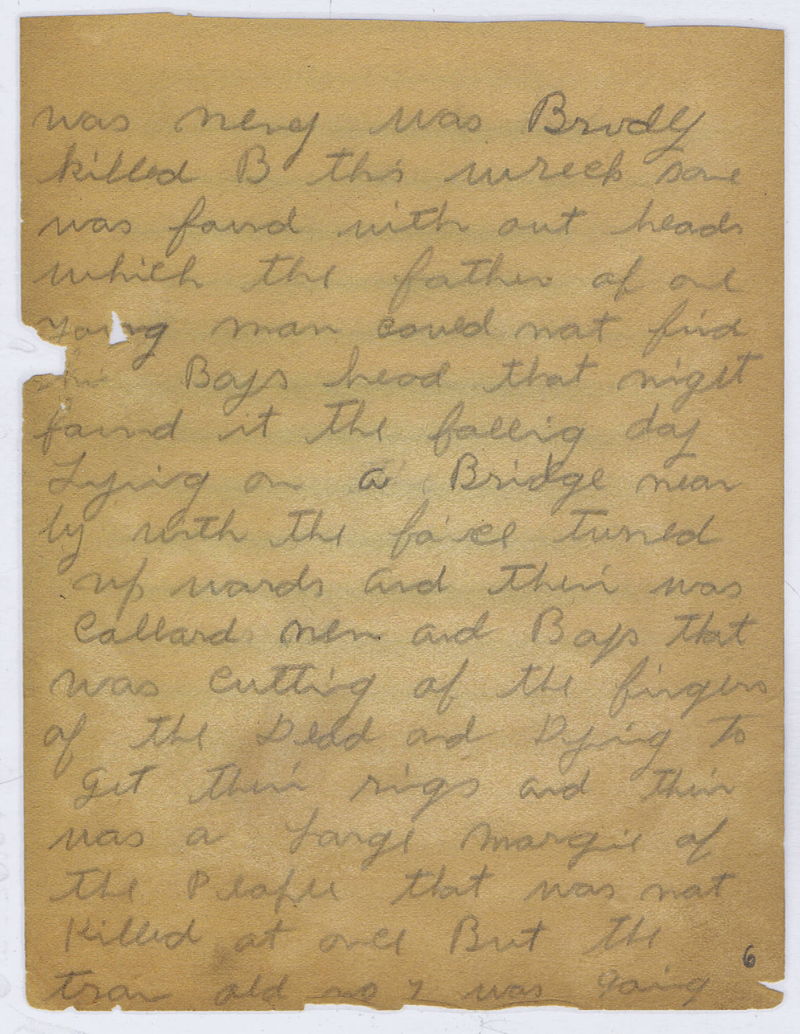 was neng was Brodly
killed B this wreck some
was found with out heads
which the father of one
young man coued not find
Boys head that night
found it the falling day
Lying on a Bridge near
by with the faice turned
up wards and their was
Callard men and Boys that
was cutting of the fingers
of the Dead and Dying to
get their rings and their
was a Large margie of
the People that was not
Killed at once But the
tran old no 7 was going
6